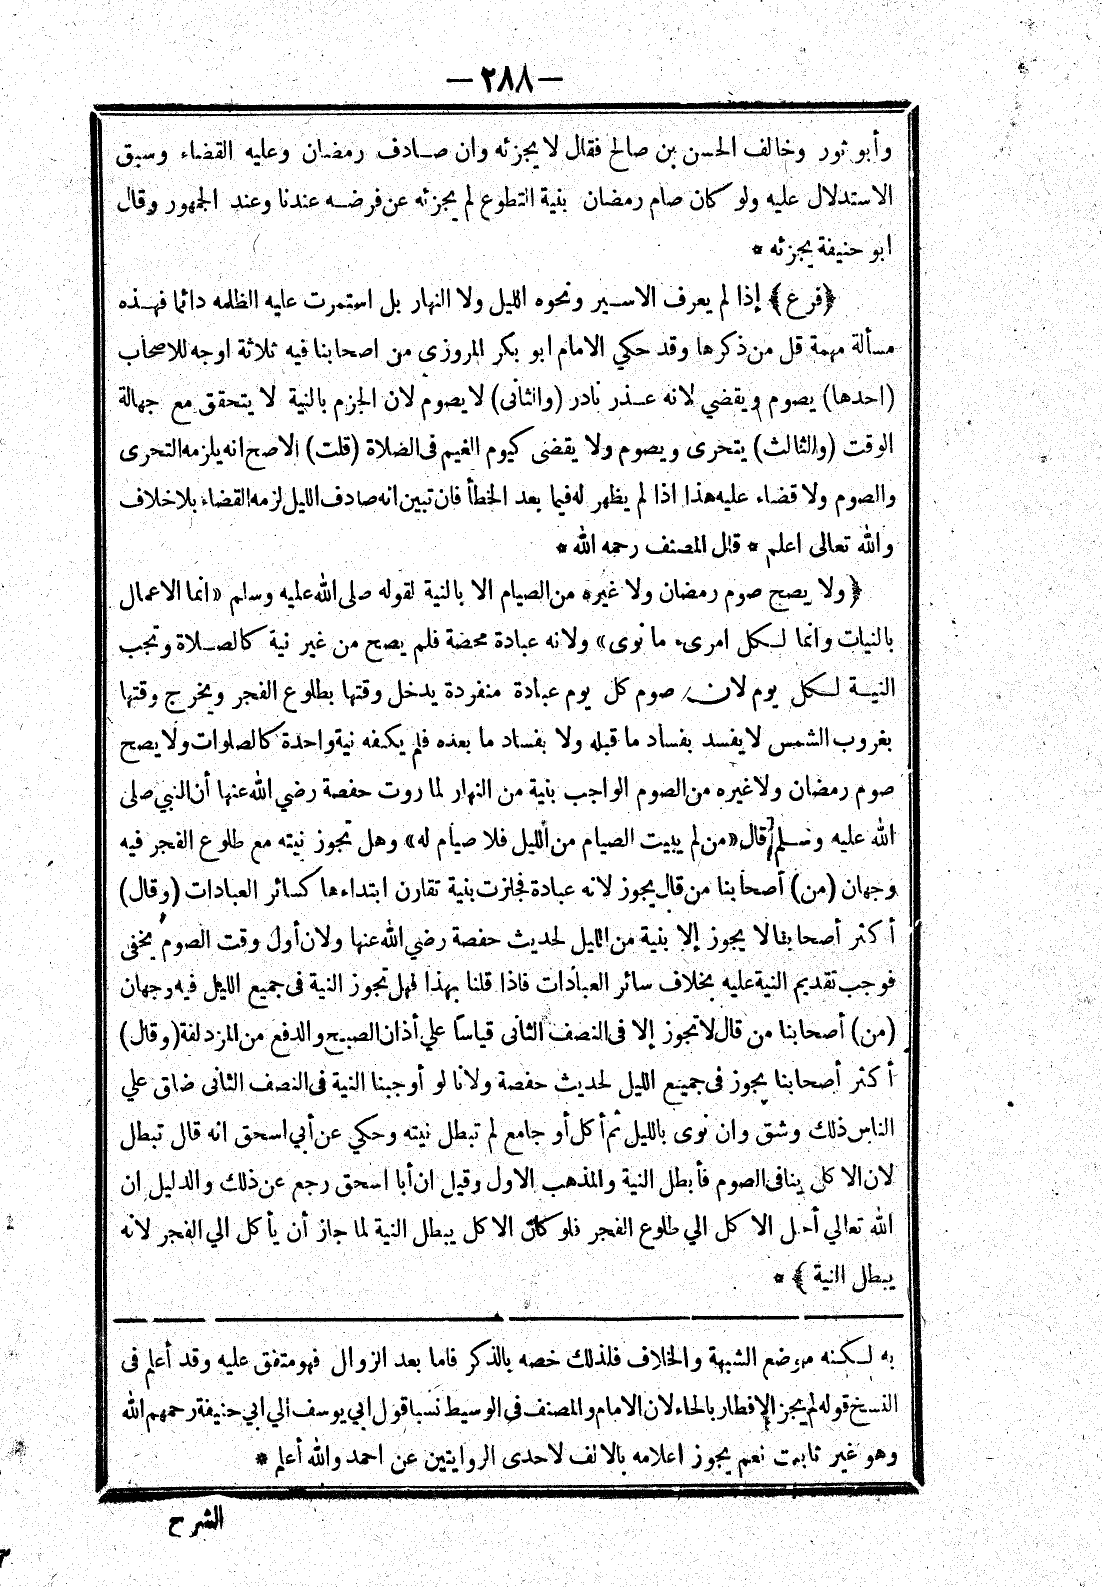 — ٢٨٨ —
وأبو ثور وخالف الحسن بن صالح فقال لا يجزئه وان صادف رمضان وعليه القضاء وسبق
الاستدلال عليه ولو كان صام رمضان بنية التطوع لم يجزئه عن فرضه عندنا وعند الجمهور وقال
ابو حنيفة يجزئه *
﴿فرع﴾ إذا لم يعرف الاسير ونحوه الليل ولا النهار بل استمرت عليه الظلمه دائما فهذه
مسألة مهمة قل من ذكرها وقد حكي الامام ابو بكر المروزى من اصحابنا فيه ثلاثة اوجه للاصحاب
(احدها) يصوم ويقضي لانه عذر نادر (والثانى) لا يصوم لان الجزم بالنية لا يتحقق مع جهالة
الوقت (والثالث) يتحرى ويصوم ولا يقضى كيوم الغيم فى الصلاة (قلت) الاصح انه يلزمه التحرى
والصوم ولا قضاء عليه هذا اذا لم يظهر له فيما بعد الخطأ فان تبين انه صادف الليل لزمه القضاء بلا خلاف
والله تعالى اعلم * قال المصنف رحمه الله *
﴿ولا يصح صوم رمضان ولا غيره من الصيام الا بالنية لقوله صلى الله عليه وسلم «انما الاعمال
بالنيات وانما لكل امرىء ما نوى» ولانه عبادة محضة فلم يصح من غير نية كالصلاة وتجب
النية لكل يوم لان صوم كل يوم عبادة منفردة يدخل وقتها بطلوع الفجر ويخرج وقتها
بغروب الشمس لا يفسد بفساد ما قبله ولا بفساد ما بعده فلم يكفه نية واحدة كالصلوات ولا يصح
صوم رمضان ولا غيره من الصوم الواجب بنية من النهار لما روت حفصة رضي الله عنها أن النبي صلى
الله عليه وسلم قال «من لم يبيت الصيام من الليل فلا صيام له» وهل تجوز نيته مع طلوع الفجر فيه
وجهان (من) أصحابنا من قال يجوز لانه عبادة فجازت بنية تقارن ابتداءها كسائر العبادات (وقال)
أكثر أصحابنا لا يجوز إلا بنية من الليل لحديث حفصة رضي الله عنها ولان أول وقت الصوم يخفى
فوجب تقديم النية عليه بخلاف سائر العبادات فاذا قلنا بهذا فهل تجوز النية فى جميع الليل فيه وجهان
(من) أصحابنا من قال لا تجوز إلا فى النصف الثانى قياسا علي أذان الصبح والدفع من المزدلفة (وقال)
أكثر أصحابنا يجوز فى جميع الليل لحديث حفصة ولانا لو أوجبنا النية فى النصف الثانى ضاق علي
الناس ذلك وشق وان نوى بالليل ثم أكل أو جامع لم تبطل نيته وحكي عن أبي اسحق انه قال تبطل
لان الاكل ينافى الصوم فأبطل النية والمذهب الاول وقيل ان أبا اسحق رجع عن ذلك والدليل ان
الله تعالي أحل الاكل الي طلوع الفجر فلو كان الاكل يبطل النية لما جاز أن يأكل الي الفجر لانه
يبطل النية﴾ *
به لكنه موضع الشبهة والخلاف فلذلك خصه بالذكر فاما بعد الزوال فهو متفق عليه وقد أعلم فى
النسخ قوله لم يجز الإفطار بالحاء لان الامام والمصنف في الوسيط نسبا قول ابي يوسف الي ابي حنيفة رحمهم الله
وهو غير ثابت نعم يجوز اعلامه بالالف لاحدى الروايتين عن احمد والله أعلم *
الشرح